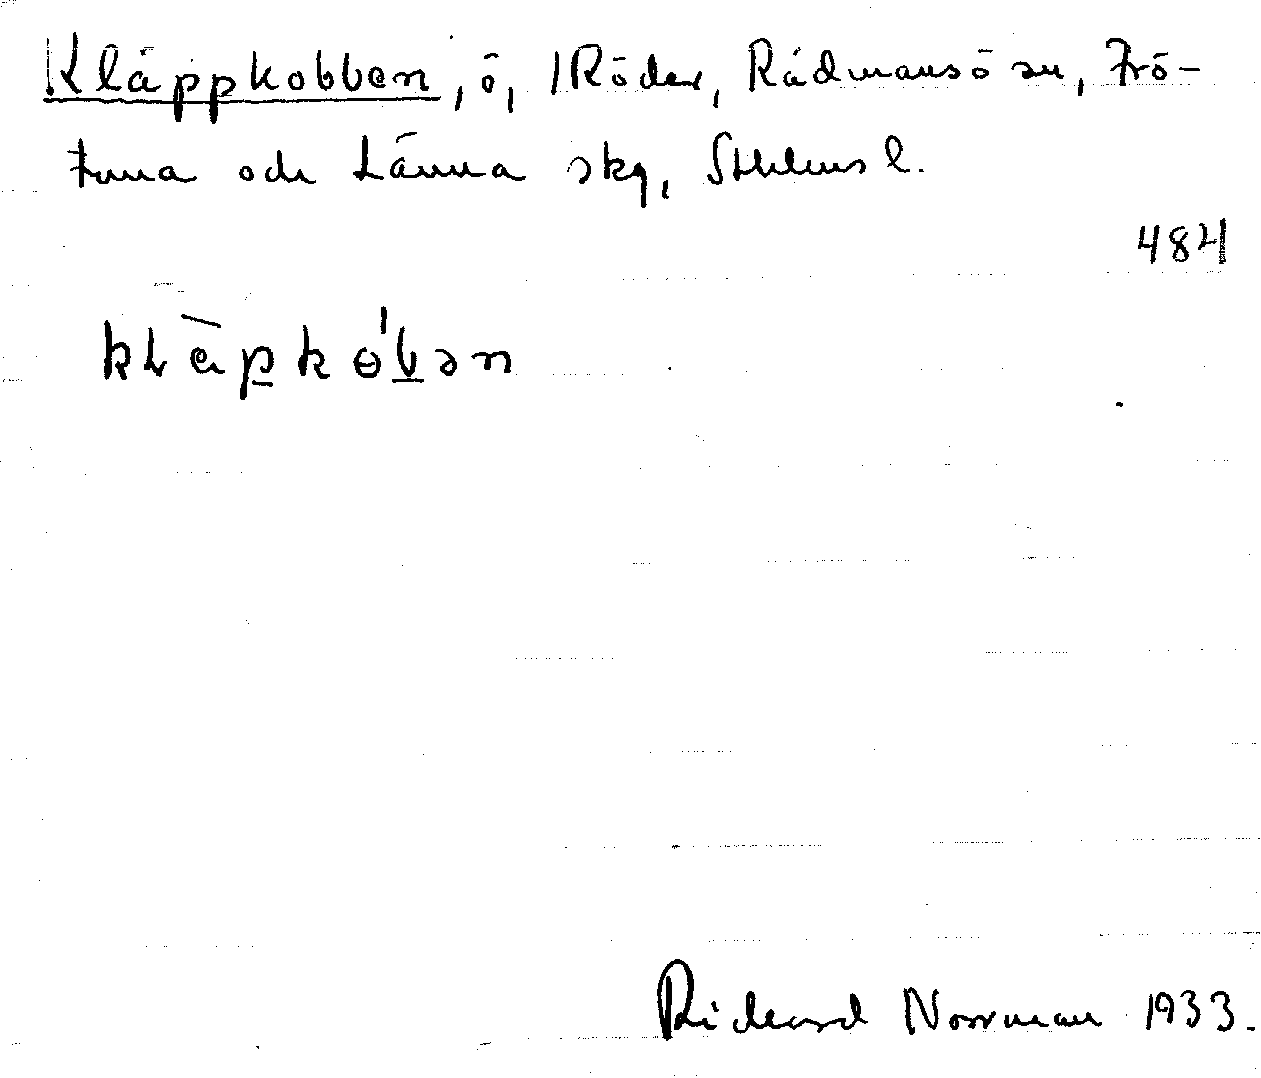 Kläppkobben, ö, I Röder, Rådmansö sn, Frö-
tuna och Länna skg, Sthlms l.
484
klæ̀pkɵ́bən
Rickard Norrman 1933.